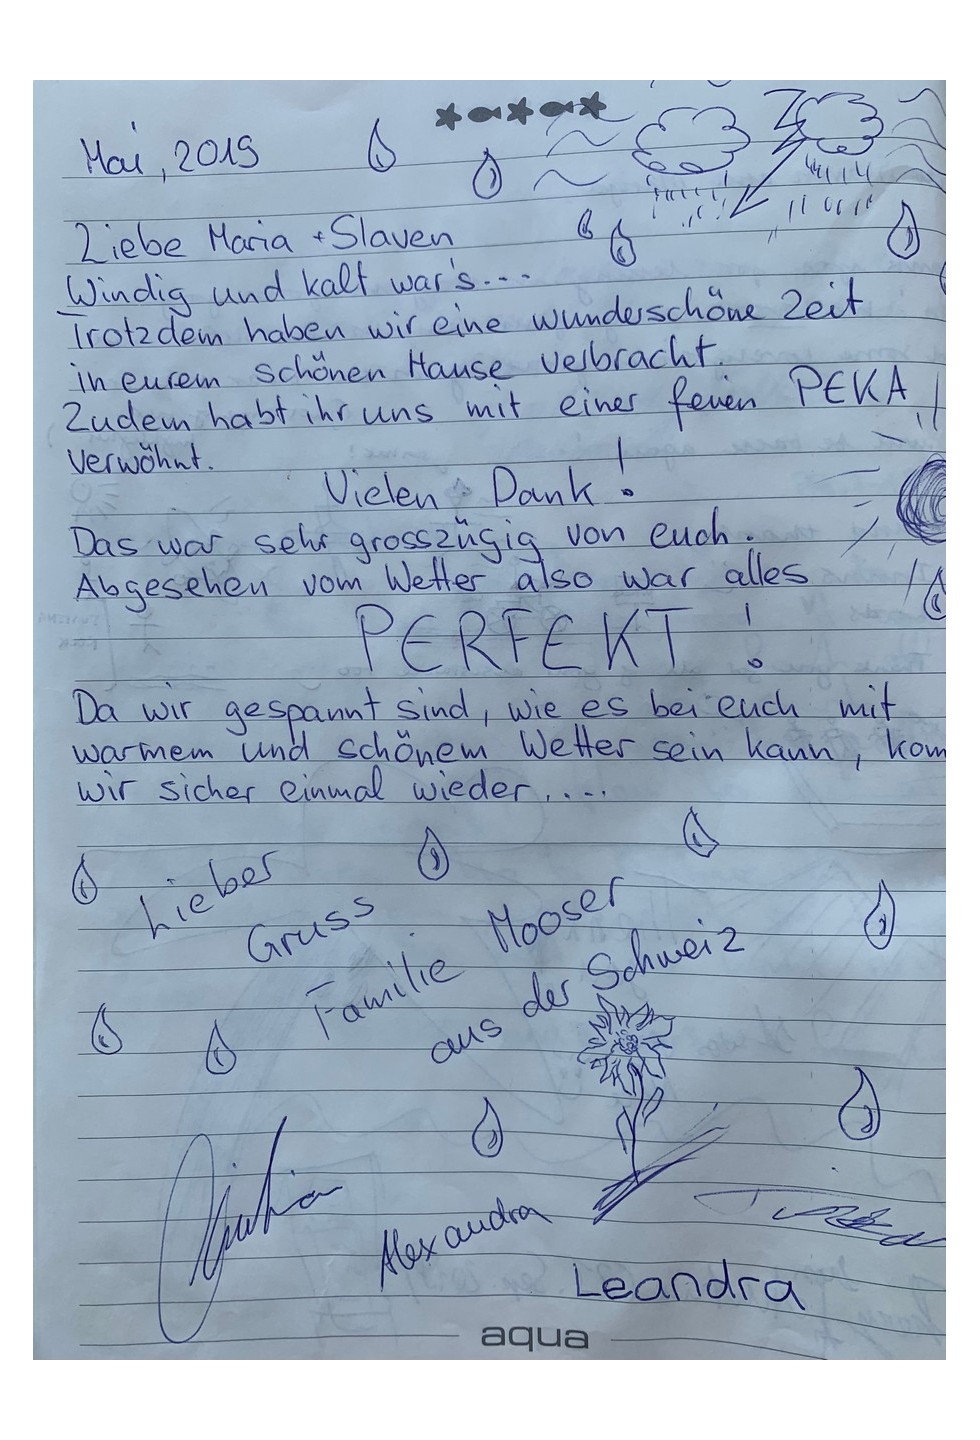 Mai, 2019
Liebe Maria + Slaven
Windig und kalt war's...
Trotzdem haben wir eine wunderschöne Zeit
in eurem schönen Hause verbracht.
Zudem habt ihr uns mit einer feinen PEKA
verwöhnt.
Vielen Dank!
Das war sehr grosszügig von euch.
Abgesehen vom Wetter also war alles
PERFEKT!
Da wir gespannt sind, wie es bei euch mit
warmem und schönem Wetter sein kann, kom
wir sicher einmal wieder....
Lieber
Gruss
Familie Mooser
aus der Schweiz
Alexandra
Leandra
aqua